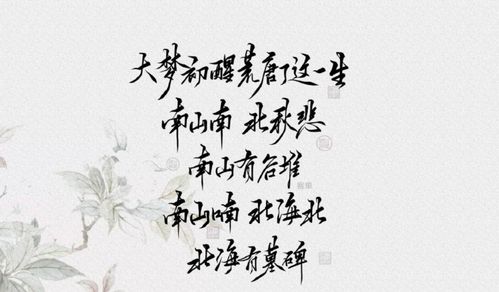 大梦初醒荒唐了这一生
南山南 北秋悲
南山有谷堆
南山喃 北海北
北海有墓碑